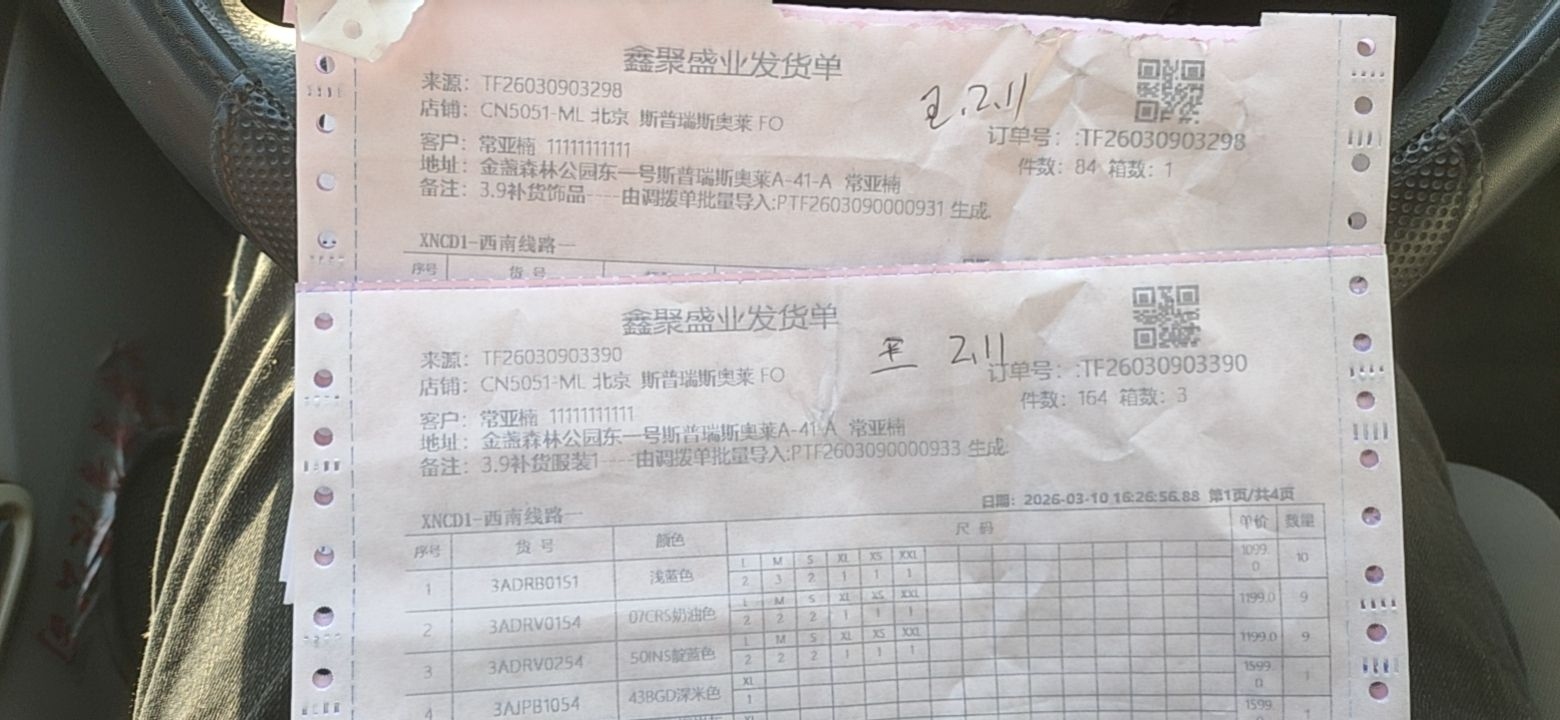 鑫聚盛业发货单
来源：TF26030903298
店铺：CN5051-ML 北京 斯普瑞斯奥莱 FO
2.11
订单号：:TF26030903298
客户：常亚楠 11111111111
件数：84 箱数：1
地址：金盏森林公园东一号斯普瑞斯奥莱A-41-A 常亚楠
备注：3.9补货饰品----由调拨单批量导入:PTF2603090000931 生成.
XNCD1-西南线路一
序号 货 号
鑫聚盛业发货单
来源：TF26030903390
2.11
店铺：CN5051-ML 北京 斯普瑞斯奥莱 FO
订单号：:TF26030903390
客户：常亚楠 11111111111
件数：164 箱数：3
地址：金盏森林公园东一号斯普瑞斯奥莱A-41-A 常亚楠
备注：3.9补货服装1----由调拨单批量导入:PTF2603090000933 生成.
日期：2026-03-10 16:26:56.88 第1页/共4页
XNCD1-西南线路一
序号 货 号 颜色 尺 码 单价 数量
L M S XL XS XXL
1 3ADRB0151 浅蓝色 2 3 2 1 1 1 1099.0 10
L M S XL XS XXL
2 3ADRV0154 07CRS奶油色 2 2 2 1 1 1 1199.0 9
L M S XL XS XXL
3 3ADRV0254 50INS靛蓝色 2 2 2 1 1 1 1199.0 9
XL
4 3AJPB1054 43BGD深米色 1 1599.0 1
XL
1599